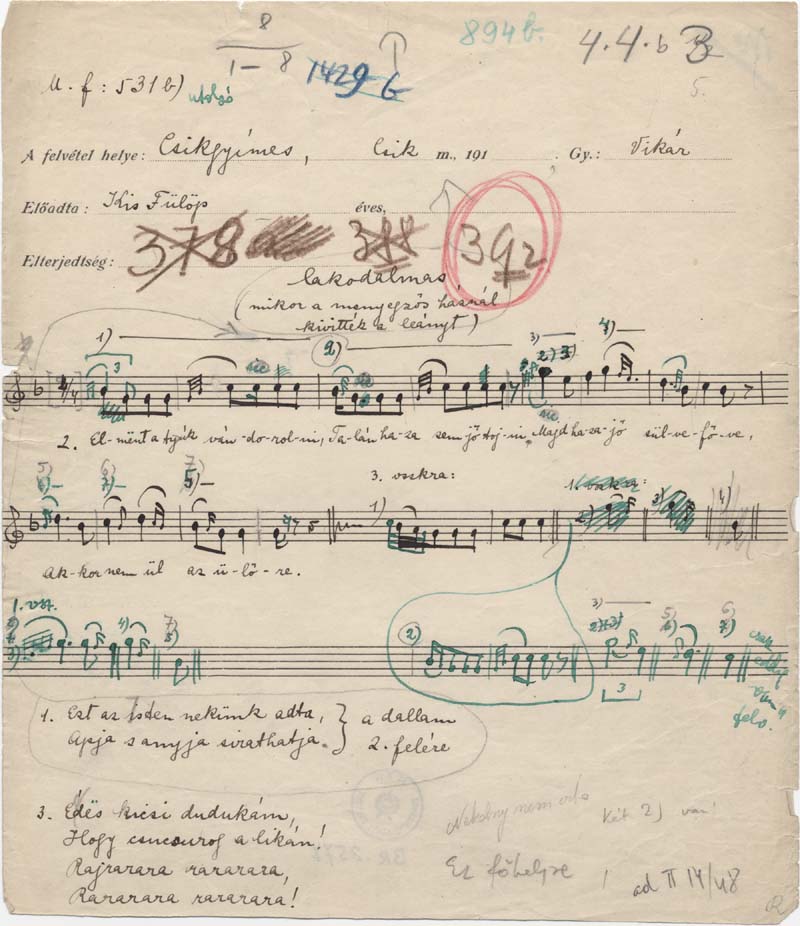 8
1-8
1429 b
894 b.
4.4.b B
5.
M. f: 531 b)
utolsó
A felvétel helye: Csikgyímes, Csik m., 191 . Gy.: Vikár
Előadta: Kis Fülöp éves,
Elterjedtség: 378 388 392
lakodalmas
(mikor a menyegzős háznál
kivitték a leányt)
1) 2) 3) 4)
3
2. El-ment a tyúk ván-do-rol-ni, Ta-lán ha-za sem jő toj-ni, Majd ha-za-jő sül-ve-fő-ve,
5) 6) 7)
3. vsskra:
1)
Ak-kor nem ül az ü-lő-re.
1. vsz.
2) 3) 5) 6)
3
csak
eddig
van
1. Ezt az Isten nekünk adta, } a dallam
Apja s anyja sirathatja. } 2. felére
3. Édes kicsi dudukám,
Hogy csucsurog a likán!
Rajrarara rararara,
Rararara rararara!
Két 2) van!
Ez főhelyre !
ad II 14/48